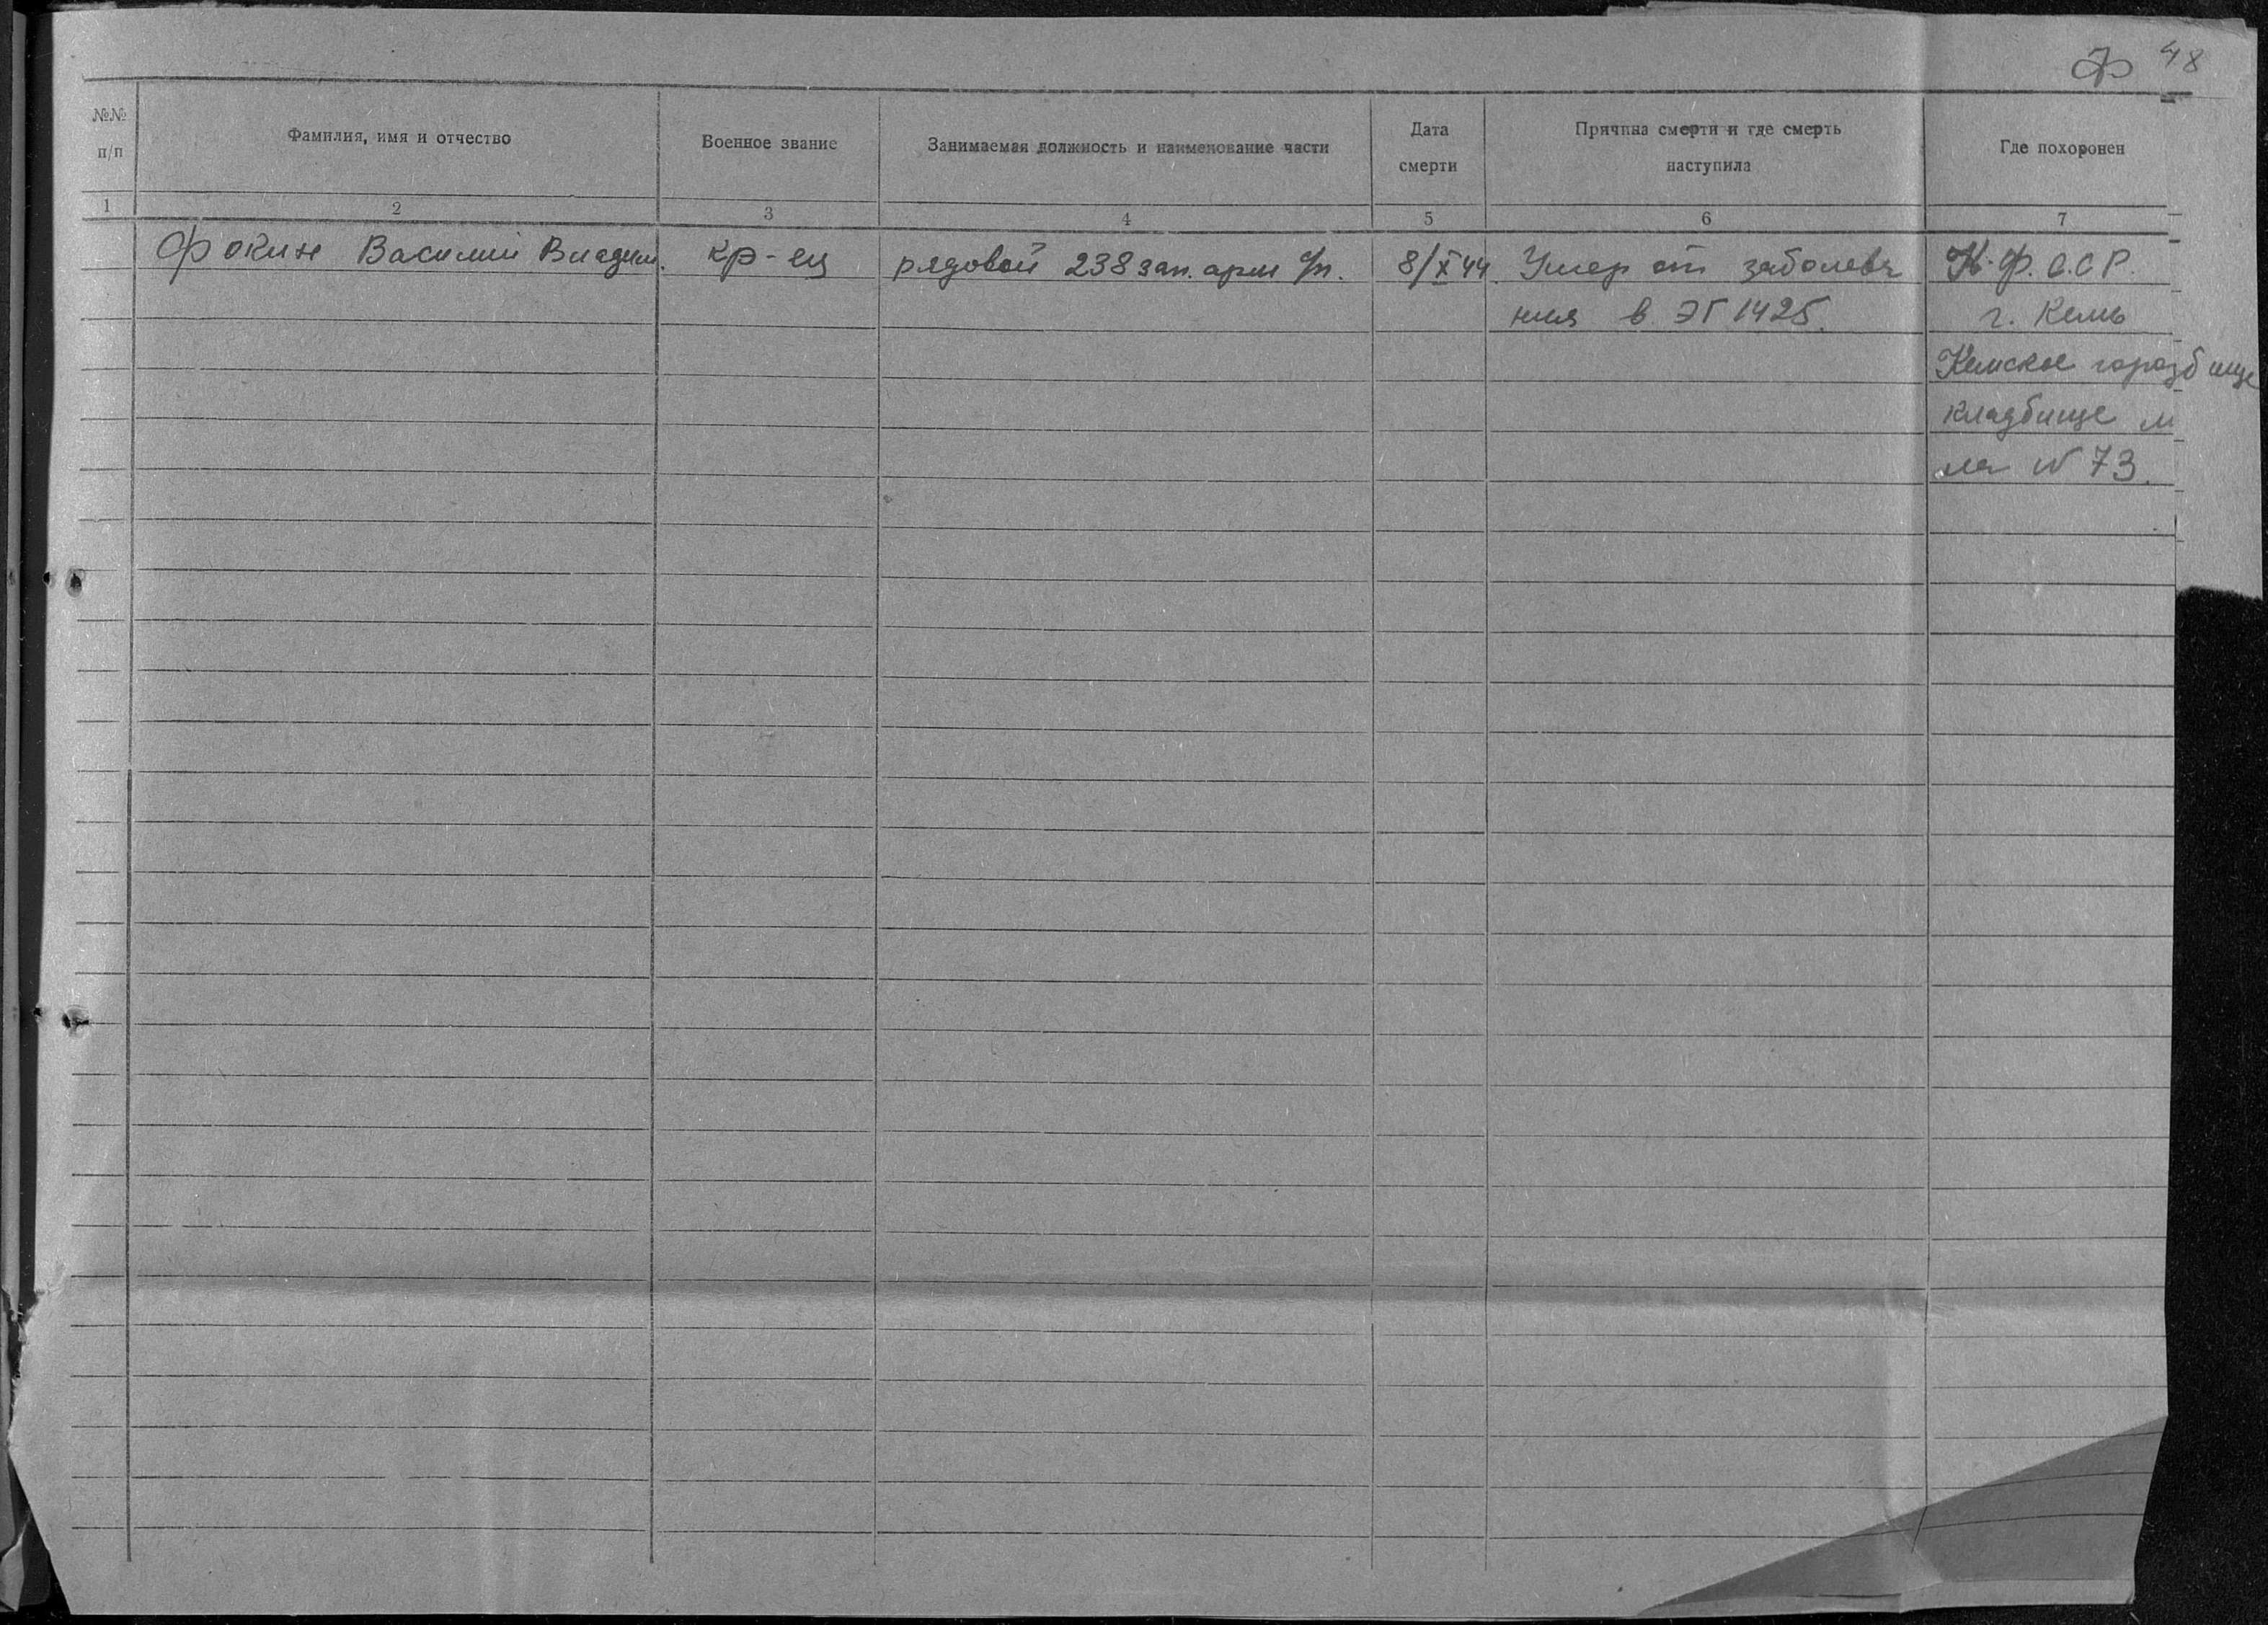 Ф 48
№№ п/п
Фамилия, имя и отчество
Военное звание
Занимаемая должность и наименование части
Дата смерти
Причина смерти и где смерть наступила
Где похоронен
1 2 3 4 5 6 7
Фокин Василий Владим. кр-ец рядовой 238 зап. арм с/п. 8/X 44 Умер от заболева К.Ф.С.С.Р.
ния в ЭГ 1425. г. Кемь
Кемское
кладбище м
ла N 73.